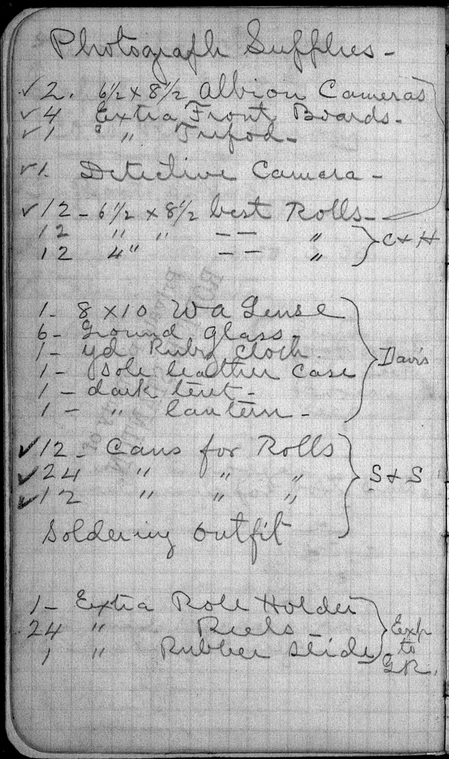 Photograph Supplies -
✓2. 6½ x 8½ Albion Cameras
✓4 Extra Front Boards -
✓1 " " Tripod -
✓1. Detective Camera -
✓12 - 6½ x 8½ best Rolls -
12 " " — — "
12 4" — — " C & H
1 - 8 x 10 W a Lense
6 - Ground glass
1 - yd Ruby cloth
1 - Sole leather Case Davis
1 - dark tent -
1 - " lantern -
✓12 - Cans for Rolls
✓24 " " " S & S
✓12 " " "
Soldering outfit
1 - Extra Role Holder
24 " Reels Exp
1 " Rubber slide to
G.R.